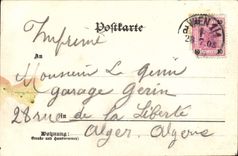 Postkarte
Imprimé
An
Monsieur Le Génin
garage Gérin
28 rue de la Liberté
in
Alger. Algérie
Wohnung:
(Straße und Hausnummer)
WIEN
10 10